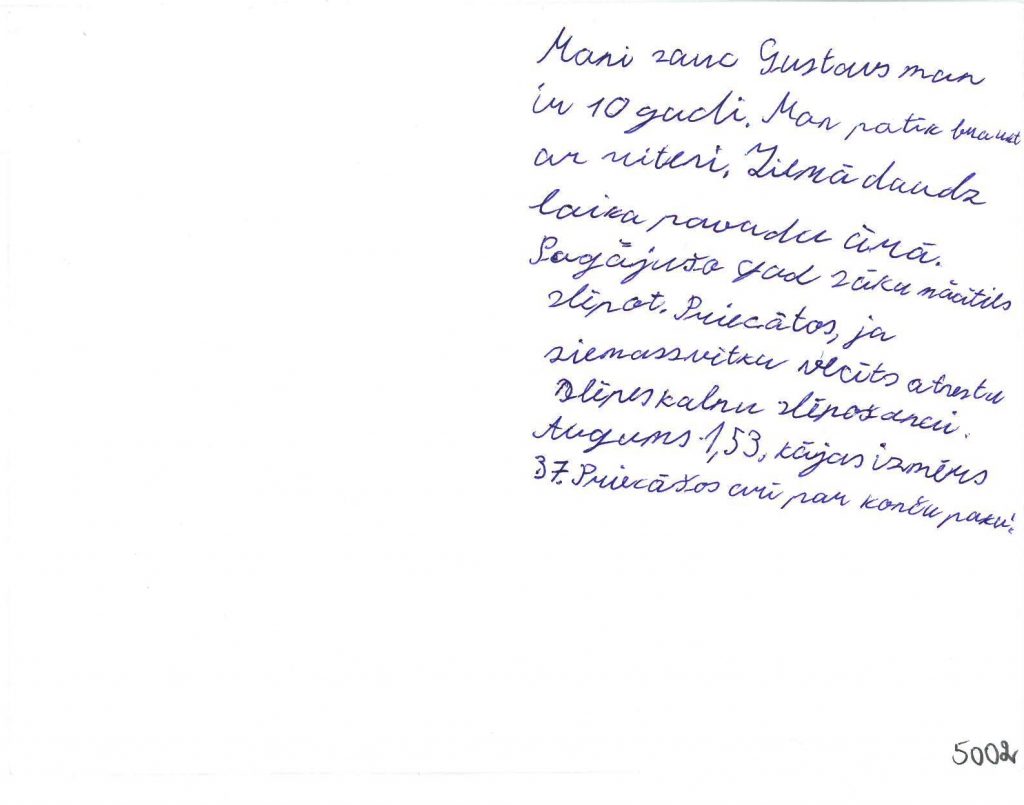 Mani sauc Gustavs man
ir 10 gadi. Man patīk braukt
ar riteni. Ziemā daudz
laika pavadu ārā.
Pagājušo gad sāku mācītils
slēpot. Priecātos, ja
ziemassvītku vecīts atnestu
slēpes kalnu slēpošanai.
Augums 1,53, kājas izmērs
37. Priecāšos arī par konču paku.
5002